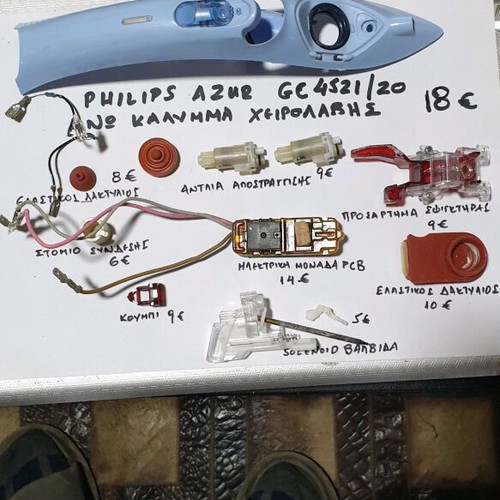 PHILIPS AZUR GC4521/20
ΝΩ ΚΑΛΥΜΜΑ ΧΕΙΡΟΛΑΒΗΣ 18€
8€
ΕΛΑΣΤΙΚΟΣ ΔΑΚΤΥΛΙΟΣ
ΑΝΤΛΙΑ ΑΠΟΣΤΡΑΓΓΙΣΗΣ 9€
ΠΡΟΣΑΡΤΗΜΑ ΣΦΙΓΚΤΗΡΑΣ
9€
ΣΤΟΜΙΟ ΣΥΝΔΕΣΗΣ
6€
ΗΛΕΚΤΡΙΚΗ ΜΟΝΑΔΑ PCB
14€
ΕΛΑΣΤΙΚΟΣ ΔΑΚΤΥΛΙΟΣ
10€
ΚΟΥΜΠΙ 9€
5€
SOLENOID ΒΑΛΒΙΔΑ